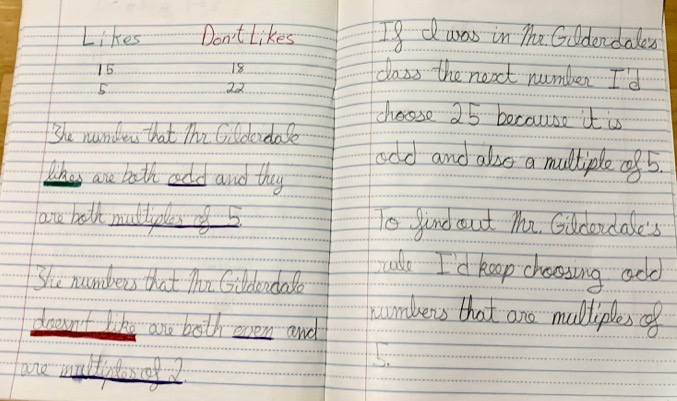 Likes Don't Likes
15 18
5 22
The numbers that Mr Gilderdale
likes are both odd and they
are both multiples of 5.
The numbers that Mr Gilderdale
doesn't like are both even and
are multiples of 2.
If I was in Mr. Gilderdale's
class the next number I'd
choose 25 because it is
odd and also a multiple of 5.
To find out Mr. Gilderdale's
rule I'd keep choosing odd
numbers that are multiples of
5.